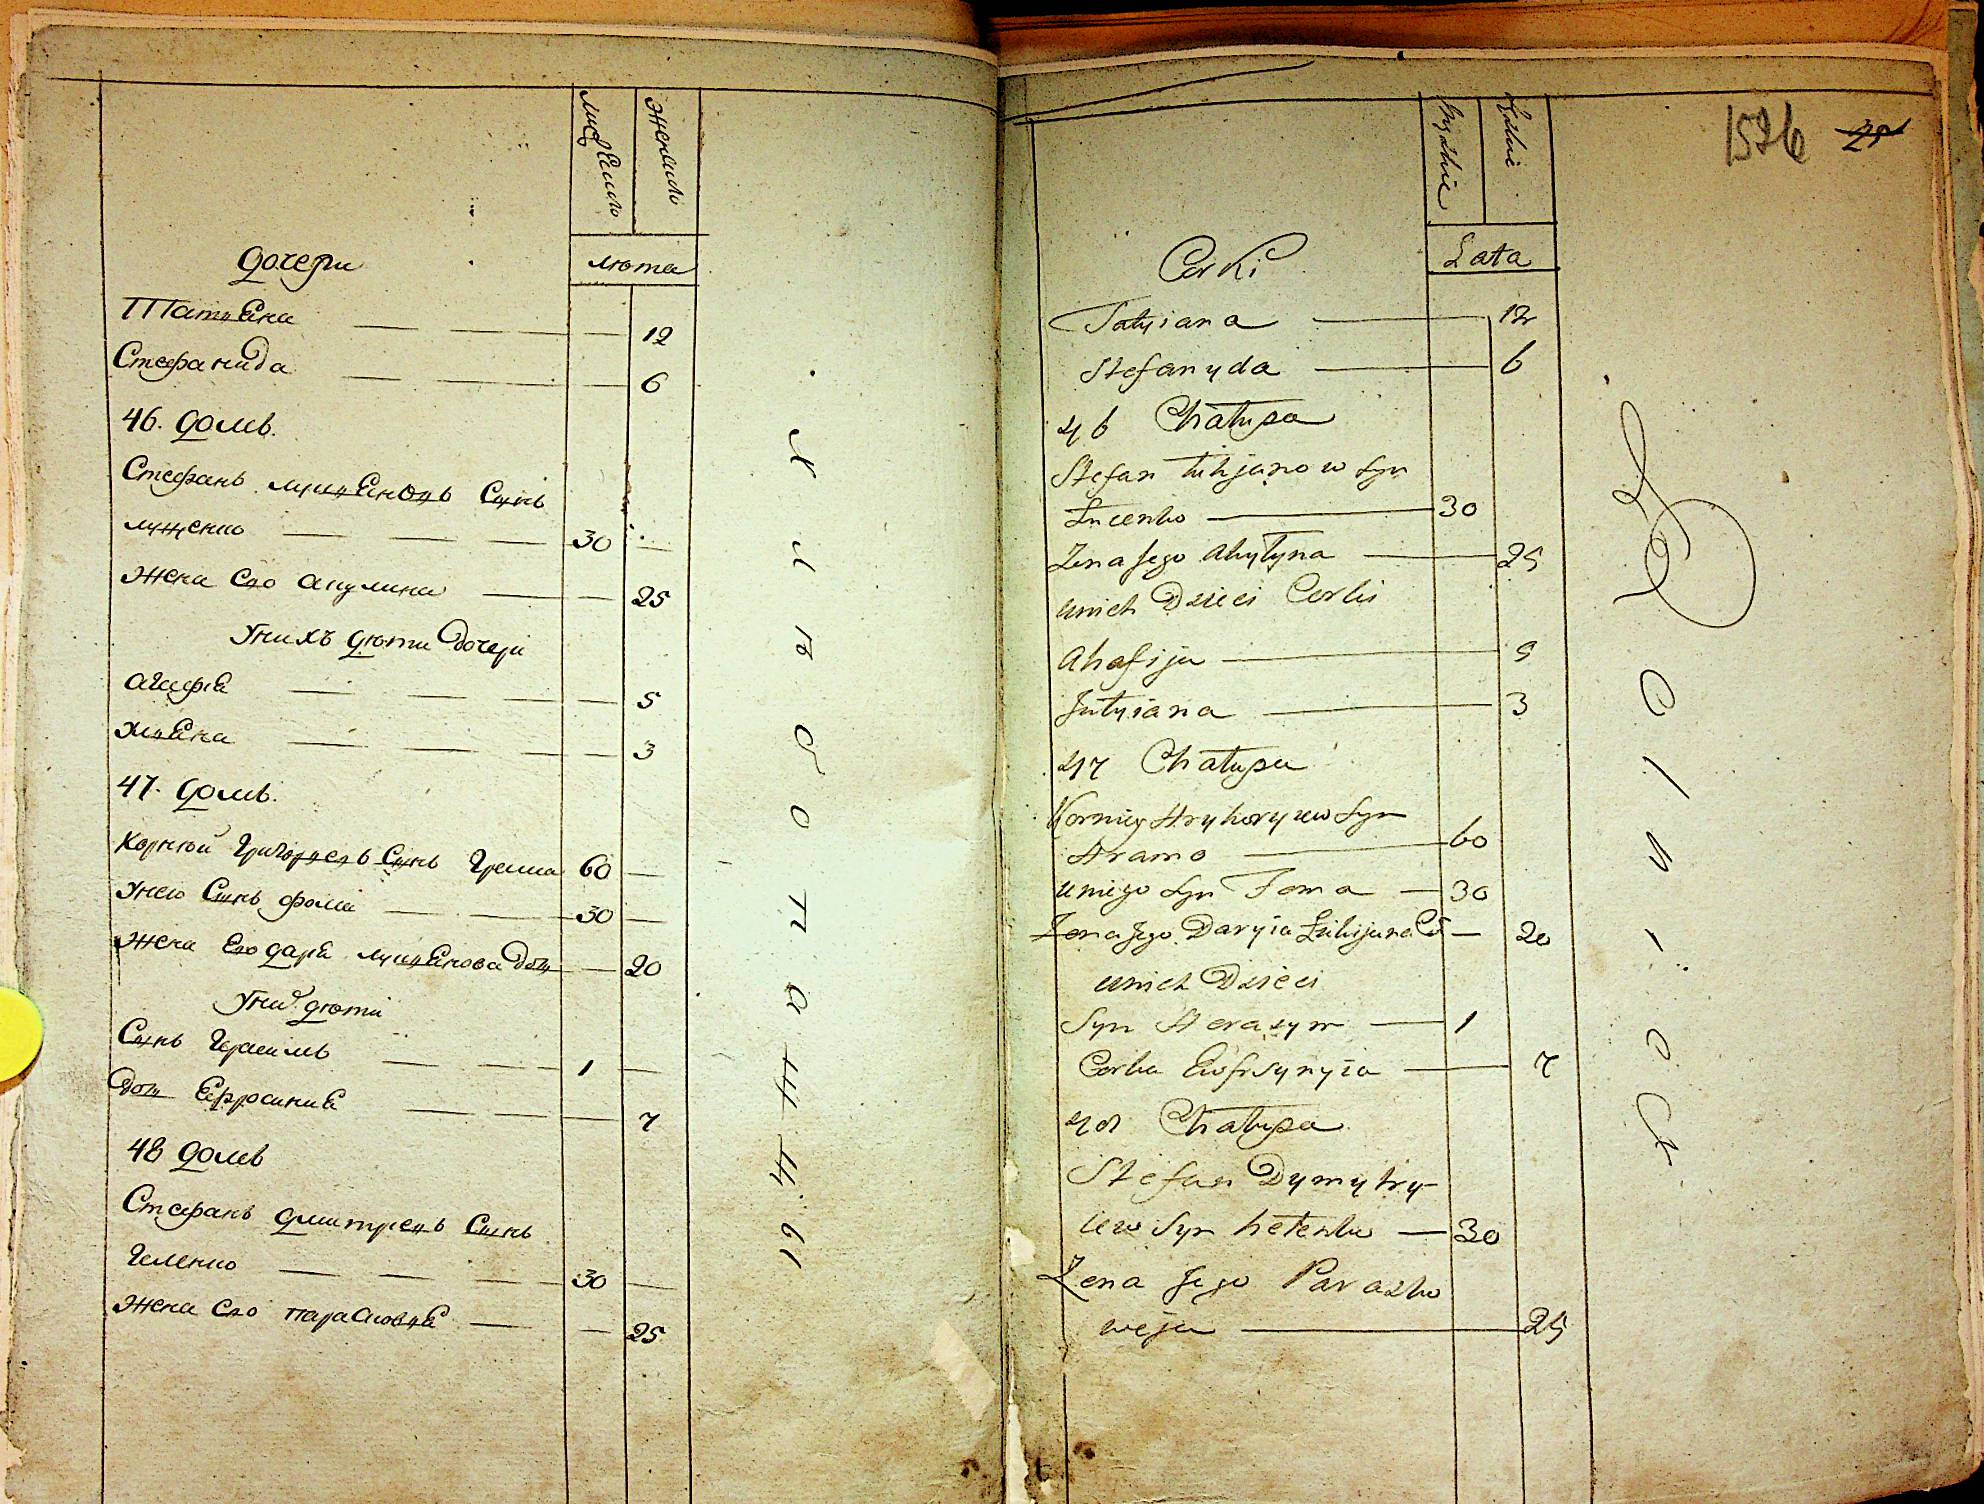 дочери
лѣта
Татияна 12
Стефанида 6
46. домъ.
Стефанъ Лукияновъ Сынъ
Луценко 30
жена Его Акулина 25
У нихъ дѣти дочери
Агафия 5
Улияна 3
47. домъ.
Корнѣй Григориевъ Сынъ 60
У него Сынъ Фома 30
Жена Его Дария Лукиянова дочь 20
У них дѣти
Сынъ Герасимъ 1
Дочь Ефросиния 7
48 домъ
Стефанъ Дмитриевъ Сынъ
30
Жена Его Парасковия 25
1526 25
Corki
Lata
Tatyiana 12
Stefanyda 6
46 Chałupa
Stefan Łukjanow Syn
Łucenko 30
Żena Jego Akyłyna 25
unich Dzieci Corki
Ahafija 5
Jułyiana 3
47 Chałupa
Korniey Hryhoryiew Syn
Hramo 60
uniego Syn Foma 30
Żena Jego Daryia Łukijana Có 20
unich Dzieci
Syn Herasym 1
Corka Ewfrsynyia 7
48 Chałupa
Stefan Dymytry-
iew Syn hełenko 30
Żena Jego Parasko
weja 25